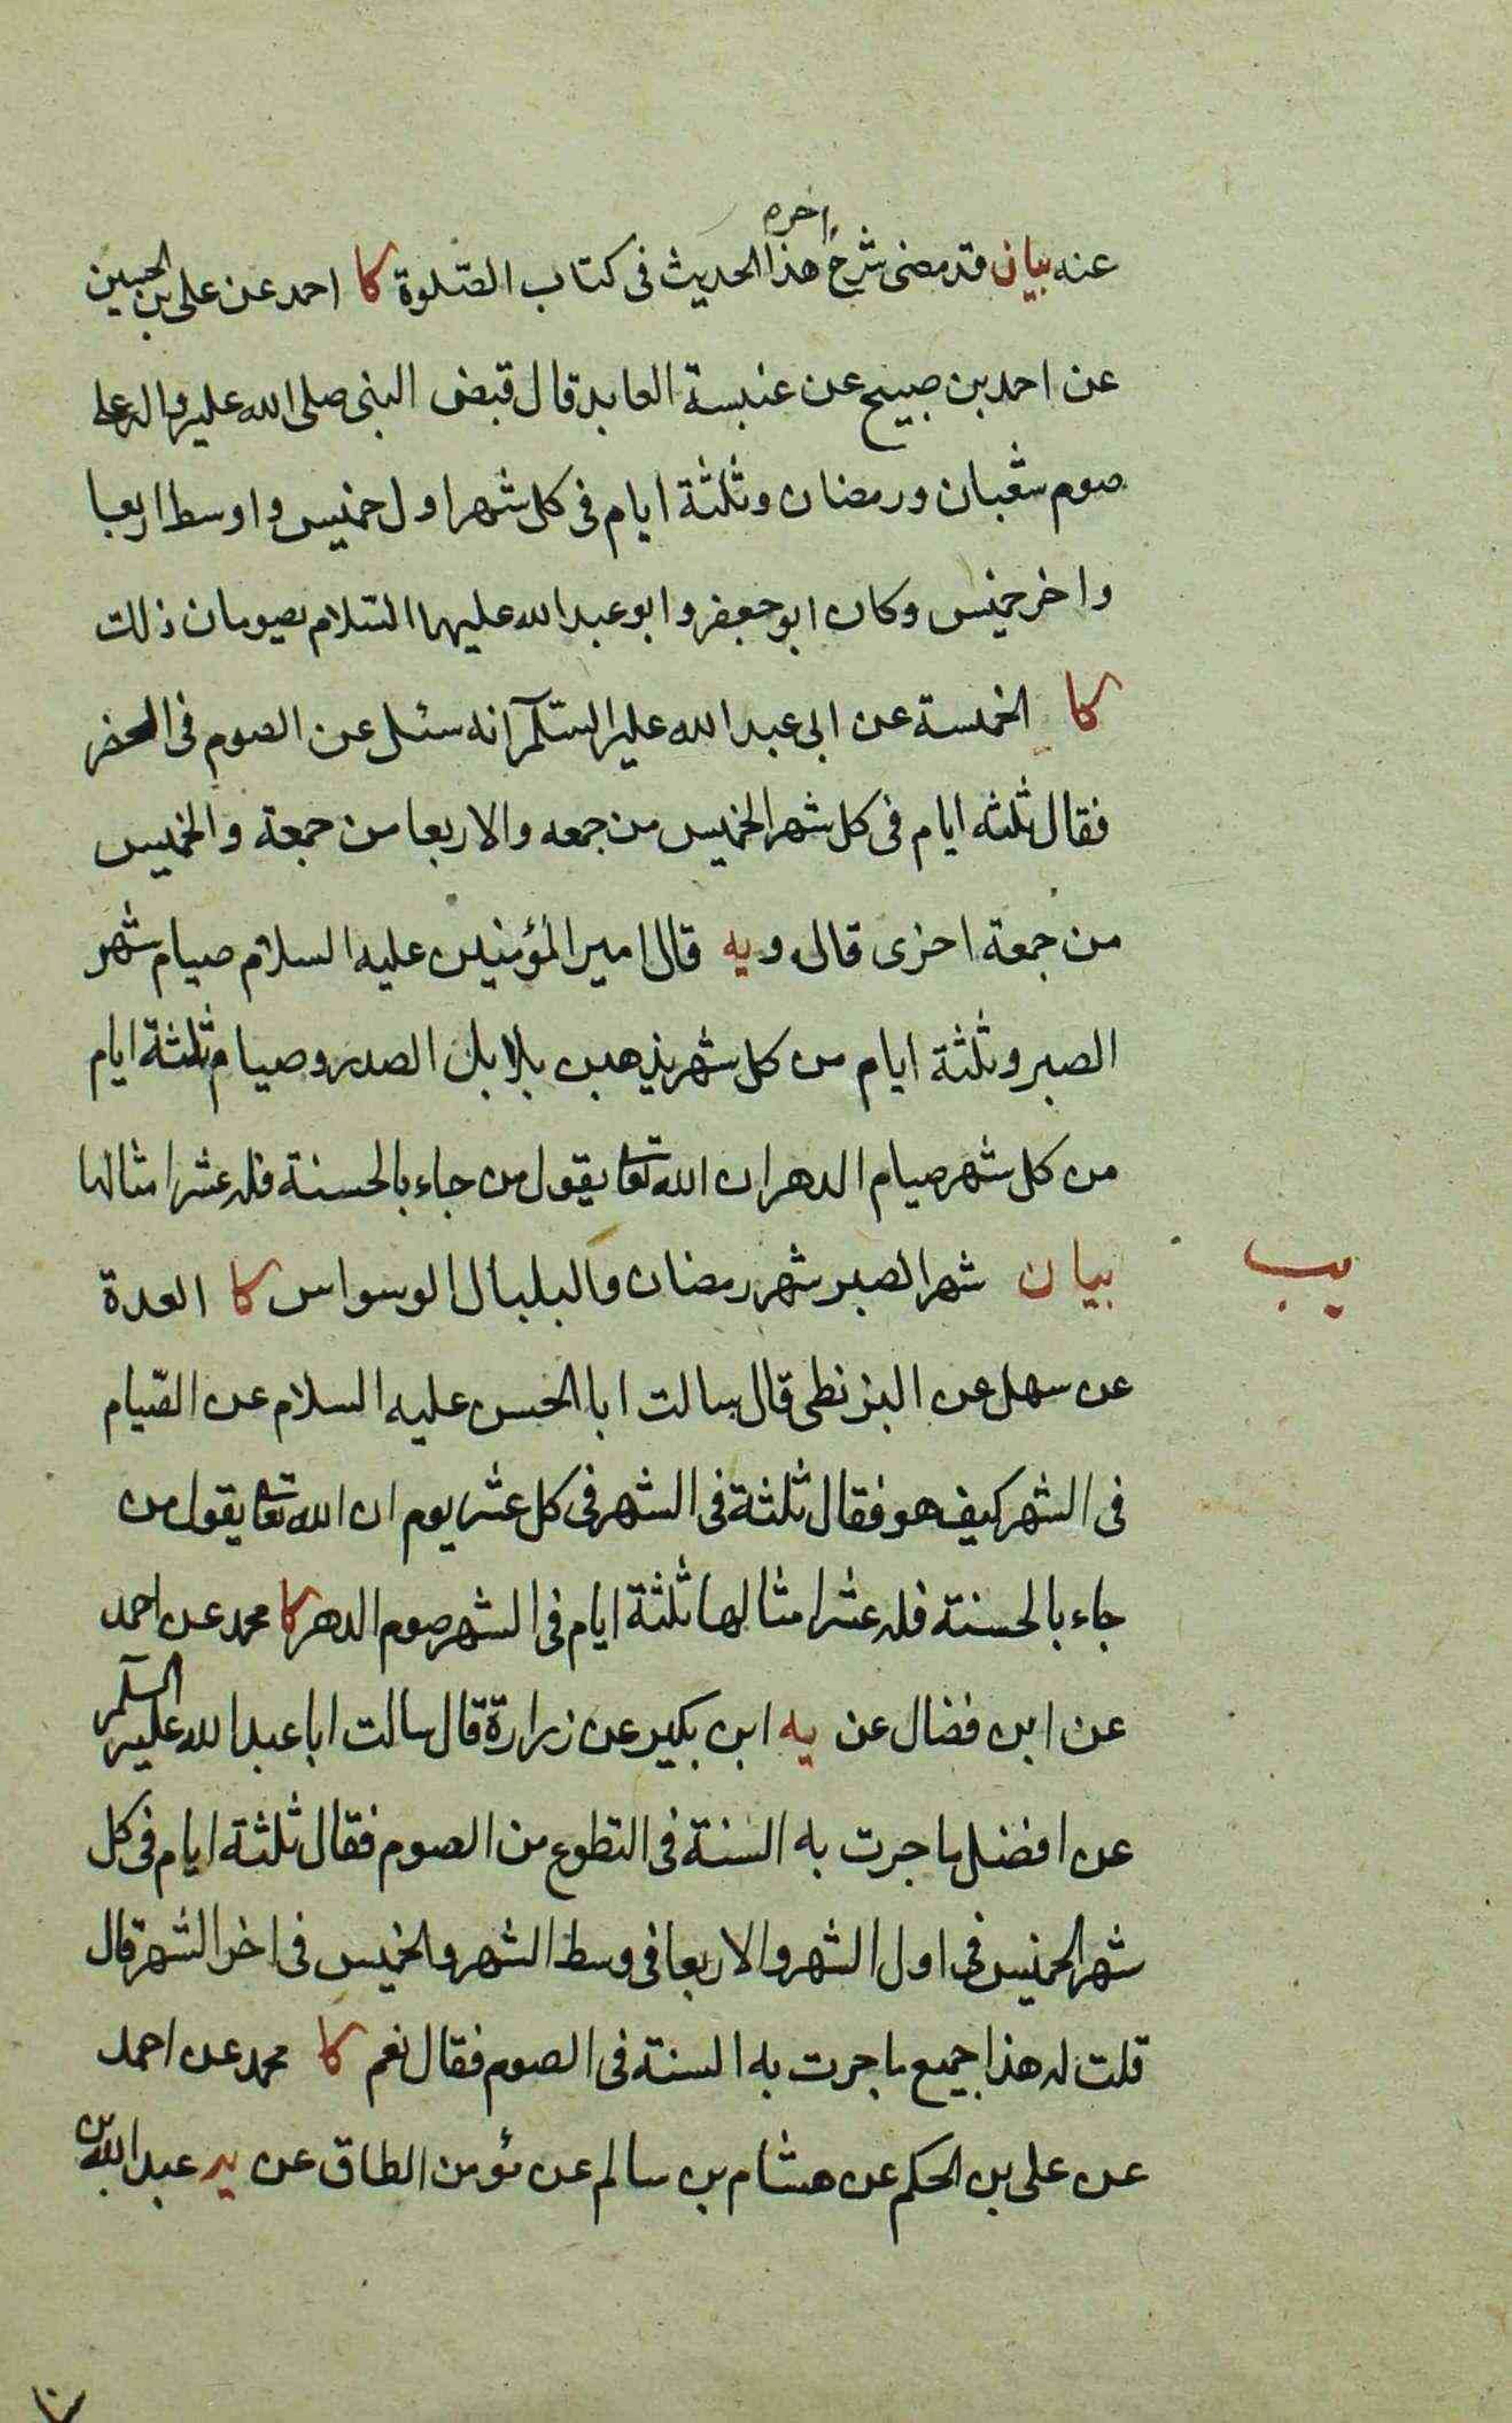 عنه بيان قد مضى شرح اخره هذا الحديث فى كتاب الصّلوة كا احمد عن على بن الحسين
عن احمد بن صبيح عن عنبسة العابد قال قبض النبى صلى الله عليه واله على
صوم شعبان ورمضان وثلثة ايام فى كل شهر اول خميس واوسط اربعا
واخر خميس وكان ابو جعفر وابو عبد الله عليهما السّلام يصومان ذلك
كا الخمسة عن ابى عبد الله عليه السّلم انه سئل عن الصوم فى الحضر
فقال ثلثه ايام فى كل شهر الخميس من جمعه والاربعا من جمعة والخميس
من جمعة اخرى قال و يه قال امير المؤمنين عليه السلام صيام شهر
الصبر وثلثة ايام من كل شهر يذهبن بلابل الصدر وصيام ثلثة ايام
من كل شهر صيام الدهر ان الله تعا يقول من جاء بالحسنة فله عشر امثالها
يب
بيان شهر الصبر شهر رمضان والبلبال الوسواس كا العدة
عن سهل عن البزنطى قال سالت ابا الحسن عليه السلام عن الصّيام
فى الشهر كيف هو فقال ثلثة فى الشهر فى كل عشر يوم ان الله تعا يقول من
جاء بالحسنة فله عشر امثالها ثلثة ايام فى الشهر صوم الدهر كا محمد عن احمد
عن ابن فضال عن يه ابن بكير عن زرارة قال سالت ابا عبد الله عليه السلم
عن افضل ما جرت به السنة فى التطوع من الصوم فقال ثلثة ايام فى كل
شهر الخميس فى اول الشهر والاربعا فى وسط الشهر والخميس فى اخر الشهر قال
قلت له هذا جميع ما جرت به السنة فى الصوم فقال نعم كا محمد عن احمد
عن على بن الحكم عن هشام بن سالم عن مؤمن الطاق عن يه عبد الله بن